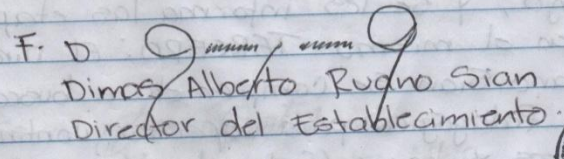 F. D
Dimas Alberto Rugno Sian
Director del Establecimiento.